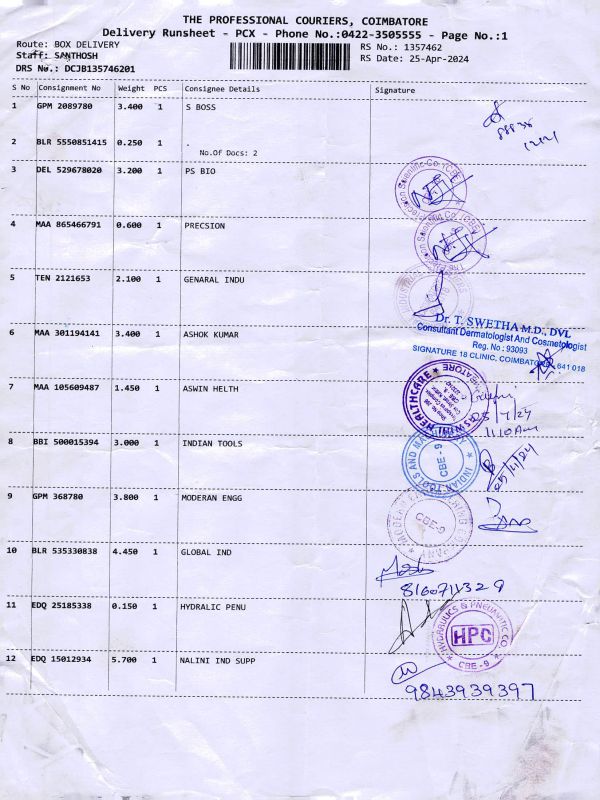 THE PROFESSIONAL COURIERS, COIMBATORE
Delivery Runsheet - PCX - Phone No.:0422-3505555 - Page No.:1
Route: BOX DELIVERY
RS No.: 1357462
Staff: SANTHOSH
RS Date: 25-Apr-2024
DRS No.: DCJB135746201
S No Consignment No Weight PCS Consignee Details Signature
1 GPM 2089780 3.400 1 S BOSS
2 BLR 5550851415 0.250 1 .
No.Of Docs: 2
3 DEL 529678020 3.200 1 PS BIO
4 MAA 865466791 0.600 1 PRECSION
5 TEN 2121653 2.100 1 GENARAL INDU
Dr. T. SWETHA M.D., DVL
Consultant Dermatologist And Cosmetologist
Reg. No.: 93093
SIGNATURE 18 CLINIC, COIMBATORE 641 018
6 MAA 301194141 3.400 1 ASHOK KUMAR
7 MAA 105609487 1.450 1 ASWIN HELTH
HEALTHCARE
25/4/24
11:10 Am
8 BBI 500015394 3.000 1 INDIAN TOOLS
INDIAN TOOLS AND
CBE - 9
25/4/24
9 GPM 368780 3.800 1 MODERAN ENGG
CBE-9
10 BLR 535330838 4.450 1 GLOBAL IND
8160711329
11 EDQ 25185338 0.150 1 HYDRALIC PENU
HYDRAULICS & PNEUMATIC CO.
HPC
CBE - 9
12 EDQ 15012934 5.700 1 NALINI IND SUPP
9843939397